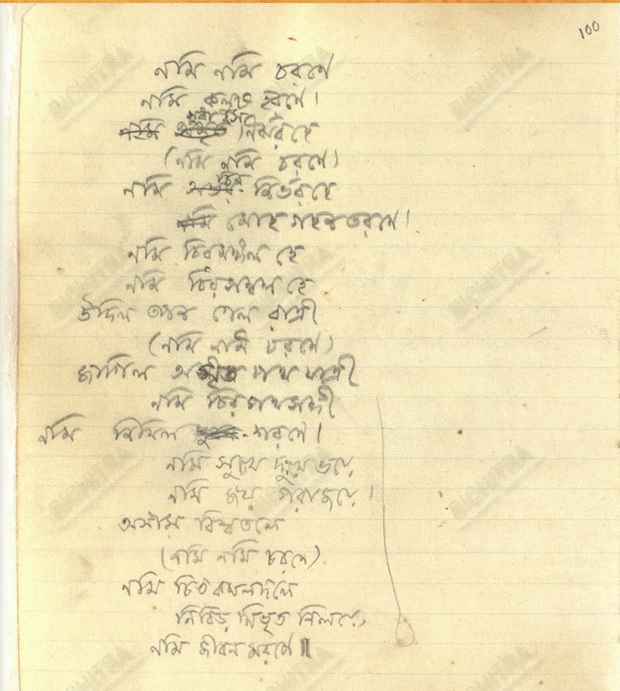 100
নমি নমি চরণে
নমি কলুষ হরণে।
সুধারস নির্ঝর হে
(নমি নমি চরণে)
নমি চির নির্ভর হে
মোহ গহন তরণে।
নমি চিরমঙ্গল হে
নমি চিরসম্বল হে
উদিল তপন গেল রাত্রী
(নমি নমি চরণে)
জাগিল অমৃত পথ যাত্রী
নমি চির পথসঙ্গী
নমি নিখিল শরণে।
নমি সুখে দুঃখে ভয়ে
নমি জয় পরাজয়ে।
অসীম বিশ্বতলে
(নমি নমি চরণে)
নমি চিত কমলদলে
নিবিড় নিভৃত নিলয়ে,
নমি জীবন মরণে॥
BICHITRA